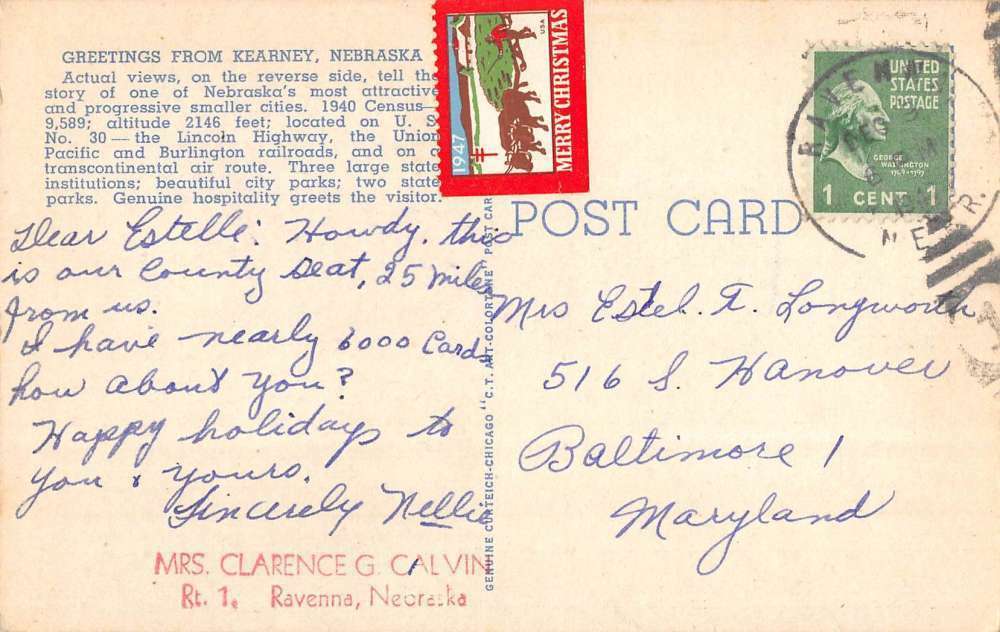 GREETINGS FROM KEARNEY, NEBRASKA
Actual views, on the reverse side, tell the
story of one of Nebraska's most attractive
and progressive smaller cities. 1940 Census—
9,589; altitude 2146 feet; located on U. S.
No. 30 — the Lincoln Highway, the Union
Pacific and Burlington railroads, and on a
transcontinental air route. Three large state
institutions; beautiful city parks; two state
parks. Genuine hospitality greets the visitor.
1947
MERRY CHRISTMAS
USA
UNITED
STATES
POSTAGE
GEORGE
WASHINGTON
1 CENT 1
RAVENNA
DEC
NEBR.
POST CARD
Dear Estelle: Howdy, this
is our County Seat, 25 miles
from us.
I have nearly 6000 Cards
how about you?
Happy holidays to
you & yours.
Sincerely Nellie
MRS. CLARENCE G. CALVIN
Rt. 1, Ravenna, Nebraska
GENUINE CURTEICH-CHICAGO "C.T. ART-COLORTONE" POST CAR
Mrs Estel. F. Longworth
516 S. Hanover
Baltimore 1
Maryland